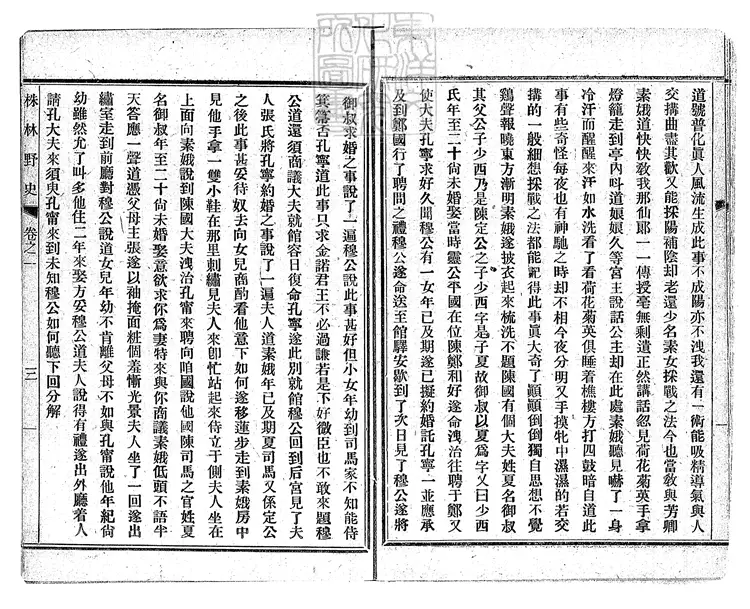 道號普化眞人風流生成此事不成陽亦不洩我還有一術能吸精導氣與人
交搆曲盡其歡又能採陽補陰却老還少名素女採戰之法今也當敎與芳卿
素娥道快快敎我那仙郎一一傳授毫無剩遺正然講話忽見荷花菊英手拿
燈籠走到亭內呌道娘娘久等宮主說話公主却在此處素娥聽見嚇了一身
冷汗而醒醒來汗如水洗看了看荷花菊英俱睡着樵樓方打四鼓暗自道此
事有些奇怪每夜也有神馳之時却不相今夜分明又手摸牝中濕濕的若交
搆的一般細想採戰之法都能記得此事眞大奇了顚顚倒倒獨自思想不覺
鷄聲報曉東方漸明素娥遂披衣起來梳洗不題陳國有個大夫姓夏名御叔
其父公子少西乃是陳定公之子少西字是子夏故御叔以夏爲字又曰少西
氏年至二十尙未婚娶當時靈公平國在位陳鄭和好遂命洩治往聘于鄭又
使大夫孔寧求好久聞穆公有一女年已及期遂已擬約婚託孔寧一並應承
及到鄭國行了聘問之禮穆公遂命送至館驛安歇到了次日見了穆公遂將
御叔求婚之事說了一遍穆公說此事甚好但小女年幼到司馬家不知能侍
箕箒否孔寧道此事只求金諾君王不必過謙若是不好微臣也不敢來題穆
公道還須商議大夫就館容日復命孔寧遂此別就館穆公回到后宮見了夫
人張氏將孔寧約婚之事說了一遍夫人道素娥年已及期夏司馬又係定公
之後此事甚妥待奴去向女兒商酌看他意下如何遂移蓮步走到素娥房中
見他手拿一雙小鞋在那里刺繡見夫人來卽忙站起來侍立于側夫人坐在
上面向素娥說到陳國大夫洩治孔甯來聘向咱國說他國陳司馬之官姓夏
名御叔年至二十尙未婚娶意欲求你爲妻特來與你商議素娥低頭不語半
天答應一聲道憑父母主張遂以袖掩面粧個羞慚光景夫人坐了一回遂出
繡室走到前廳對穆公說道女兒年幼不肯離父母不如與孔甯說他年紀尙
幼雖然允了呌多他住二年來娶方妥穆公道夫人說得有禮遂出外廳着人
請孔大夫來須臾孔甯來到未知穆公如何聽下回分解
株林野史
卷之一
三